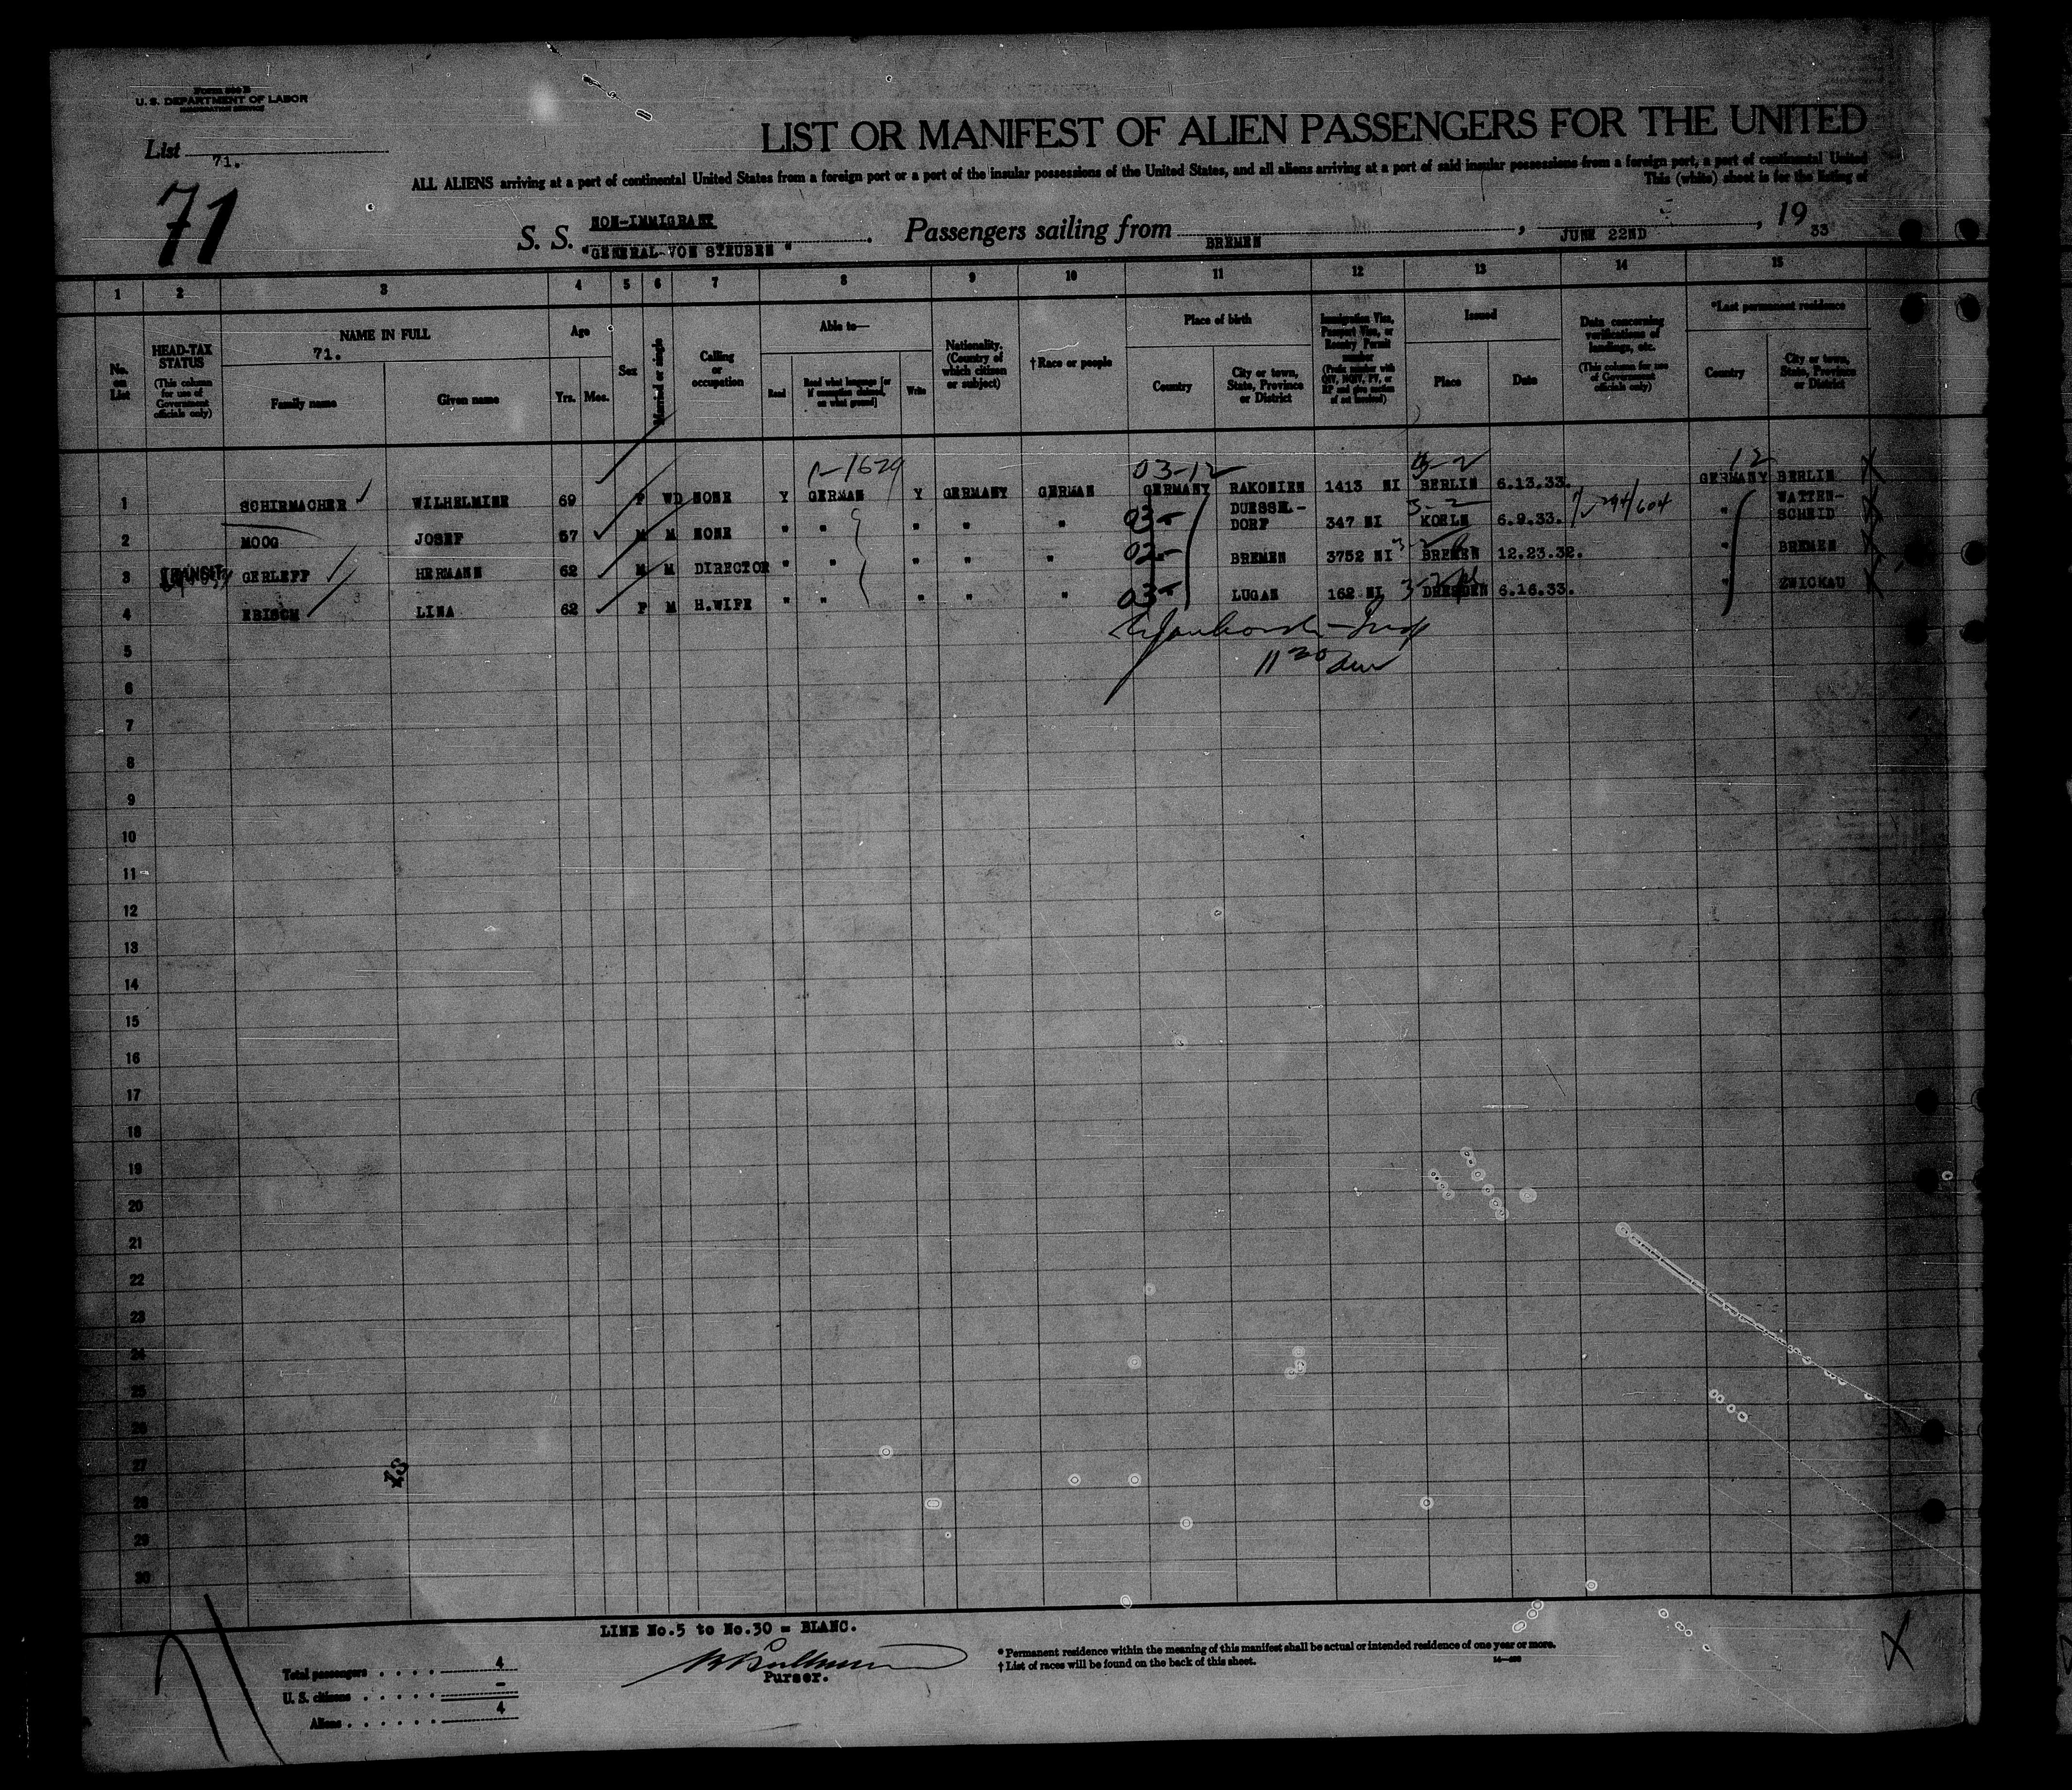 Form 500 B
U. S. DEPARTMENT OF LABOR
IMMIGRATION SERVICE
List 71.
71
LIST OR MANIFEST OF ALIEN PASSENGERS FOR THE UNITED
ALL ALIENS arriving at a port of continental United States from a foreign port or a port of the insular possessions of the United States, and all aliens arriving at a port of said insular possessions from a foreign port, a port of continental United
This (white) sheet is for the listing of
NON-IMMIGRANT
S. S. "GENERAL VON STEUBEN". Passengers sailing from BREMEN, JUNE 22ND, 1933
1 2 3 4 5 6 7 8 9 10 11 12 13 14 15
No. on List
HEAD-TAX STATUS (This column for use of Government officials only)
NAME IN FULL 71.
Family name Given name
Age Yrs. Mos.
Sex
Married or single
Calling or occupation
Able to—
Read Read what language [or if exemption claimed, on what ground] Write
Nationality. (Country of which citizen or subject)
†Race or people
Place of birth
Country City or town, State, Province or District
Immigration Visa, Passport Visa, or Reentry Permit number (Prefix number with QIV, NQIV, PV, or RP and give section of act involved)
Issued
Place Date
Data concerning verifications of landings, etc. (This column for use of Government officials only)
*Last permanent residence
Country City or town, State, Province or District
1-1629 03-12 3-2 12
1 SCHIRMACHER WILHELMINE 69 F WD NONE Y GERMAN Y GERMANY GERMAN GERMANY RAKONIEN 1413 NI BERLIN 6.13.33. GERMANY BERLIN
2 MOOG JOSEF 57 M M NONE " " " " " 03- DUESSEL-DORF 347 NI 3-2 KOELN 6.9.33. " WATTEN-SCHEID
3 TRANSIT GERLEFF HERMANN 62 M M DIRECTOR " " " " " 02- BREMEN 3752 NI BREMEN 12.23.32. BREMEN
4 LINA 62 F M H.WIFE " " " " " 03- LUGAU 162 NI DRESDEN 6.16.33. " ZWICKAU
5
6
7
8
9
10
11
12
13
14
15
16
17
18
19
20
21
22
23
24
25
26
27
28
29
30
LINE No.5 to No.30 = BLANC.
Purser.
Total passengers . . . . 4
U. S. citizens . . . . . -
Aliens . . . . . . 4
* Permanent residence within the meaning of this manifest shall be actual or intended residence of one year or more.
† List of races will be found on the back of this sheet.